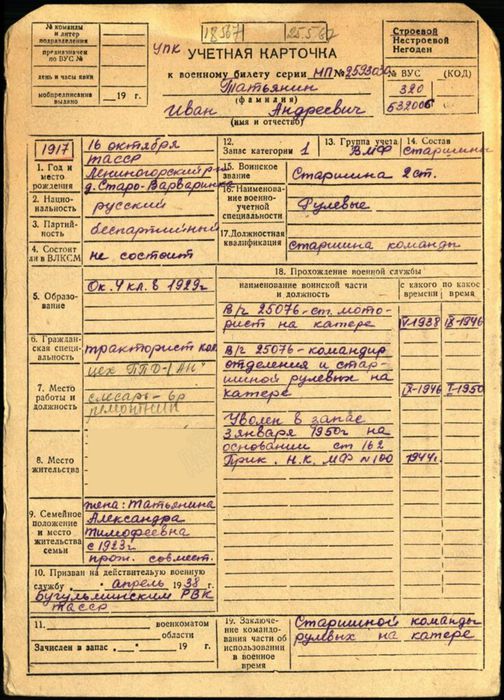 № команды
и литер
подразделения
предназначен
по ВУС №
день и часы явки
мобпредписание
выдано
19 г.
18567
25.5.62
УПК
УЧЕТНАЯ КАРТОЧКА
к военному билету серии НП №
Татьянин
(фамилия)
Иван Андреевич
(имя и отчество)
Строевой
Нестроевой
Негоден
№ ВУС (КОД)
320
1917
1. Год и
место
рождения
16 октября
ТАССР
Лениногорский р-н
д. Старо-Варваринка
2. Нацио-
нальность
русский
3. Партий-
ность
беспартийный
4. Состоит
ли в ВЛКСМ
не состоит
5. Образо-
вание
Ок. 4 кл. в 1929г
6. Гражданская
ская специ-
альность
тракторист
7. Место
работы и
должность
цех ППД-
слесарь-
ремонтник
8. Место
жительства
9. Семейное
положение
и место
жительства
семьи
жена: Татьянина
Александра
Тимофеевна
с 1923г
прож. совмест.
10. Призван на действительную военную
службу „ " апрель 1938 г.
Бугульминским РВК
ТАССР
11. военкоматом
области
Зачислен в запас „ " 19 г.
12.
Запас категории 1
13. Группа учета
ВМФ
14. Состав
старшины
15. Воинское
звание
Старшина 2 ст.
16. Наименова-
ние военно-
учетной
специальности
Рулевые
17. Должностная
квалификация
старшина команды
18. Прохождение военной службы
наименование воинской части
и должность
с какого
времени
по какое
время
В/ч 25076-ст. мото-
рист на катере IV-1938 IX-1946
В/ч 25076-командир
отделения и стар-
шиной рулевых на
катере IX-1946 I-1950
Уволен в запас
3 января 1950г на
основании ст 162
Прик. Н.К. МФ №100 1944г.
19. Заключе-
ние командо-
вания части об
использовании
в военное
время
Старшиной команды
рулевых на катере